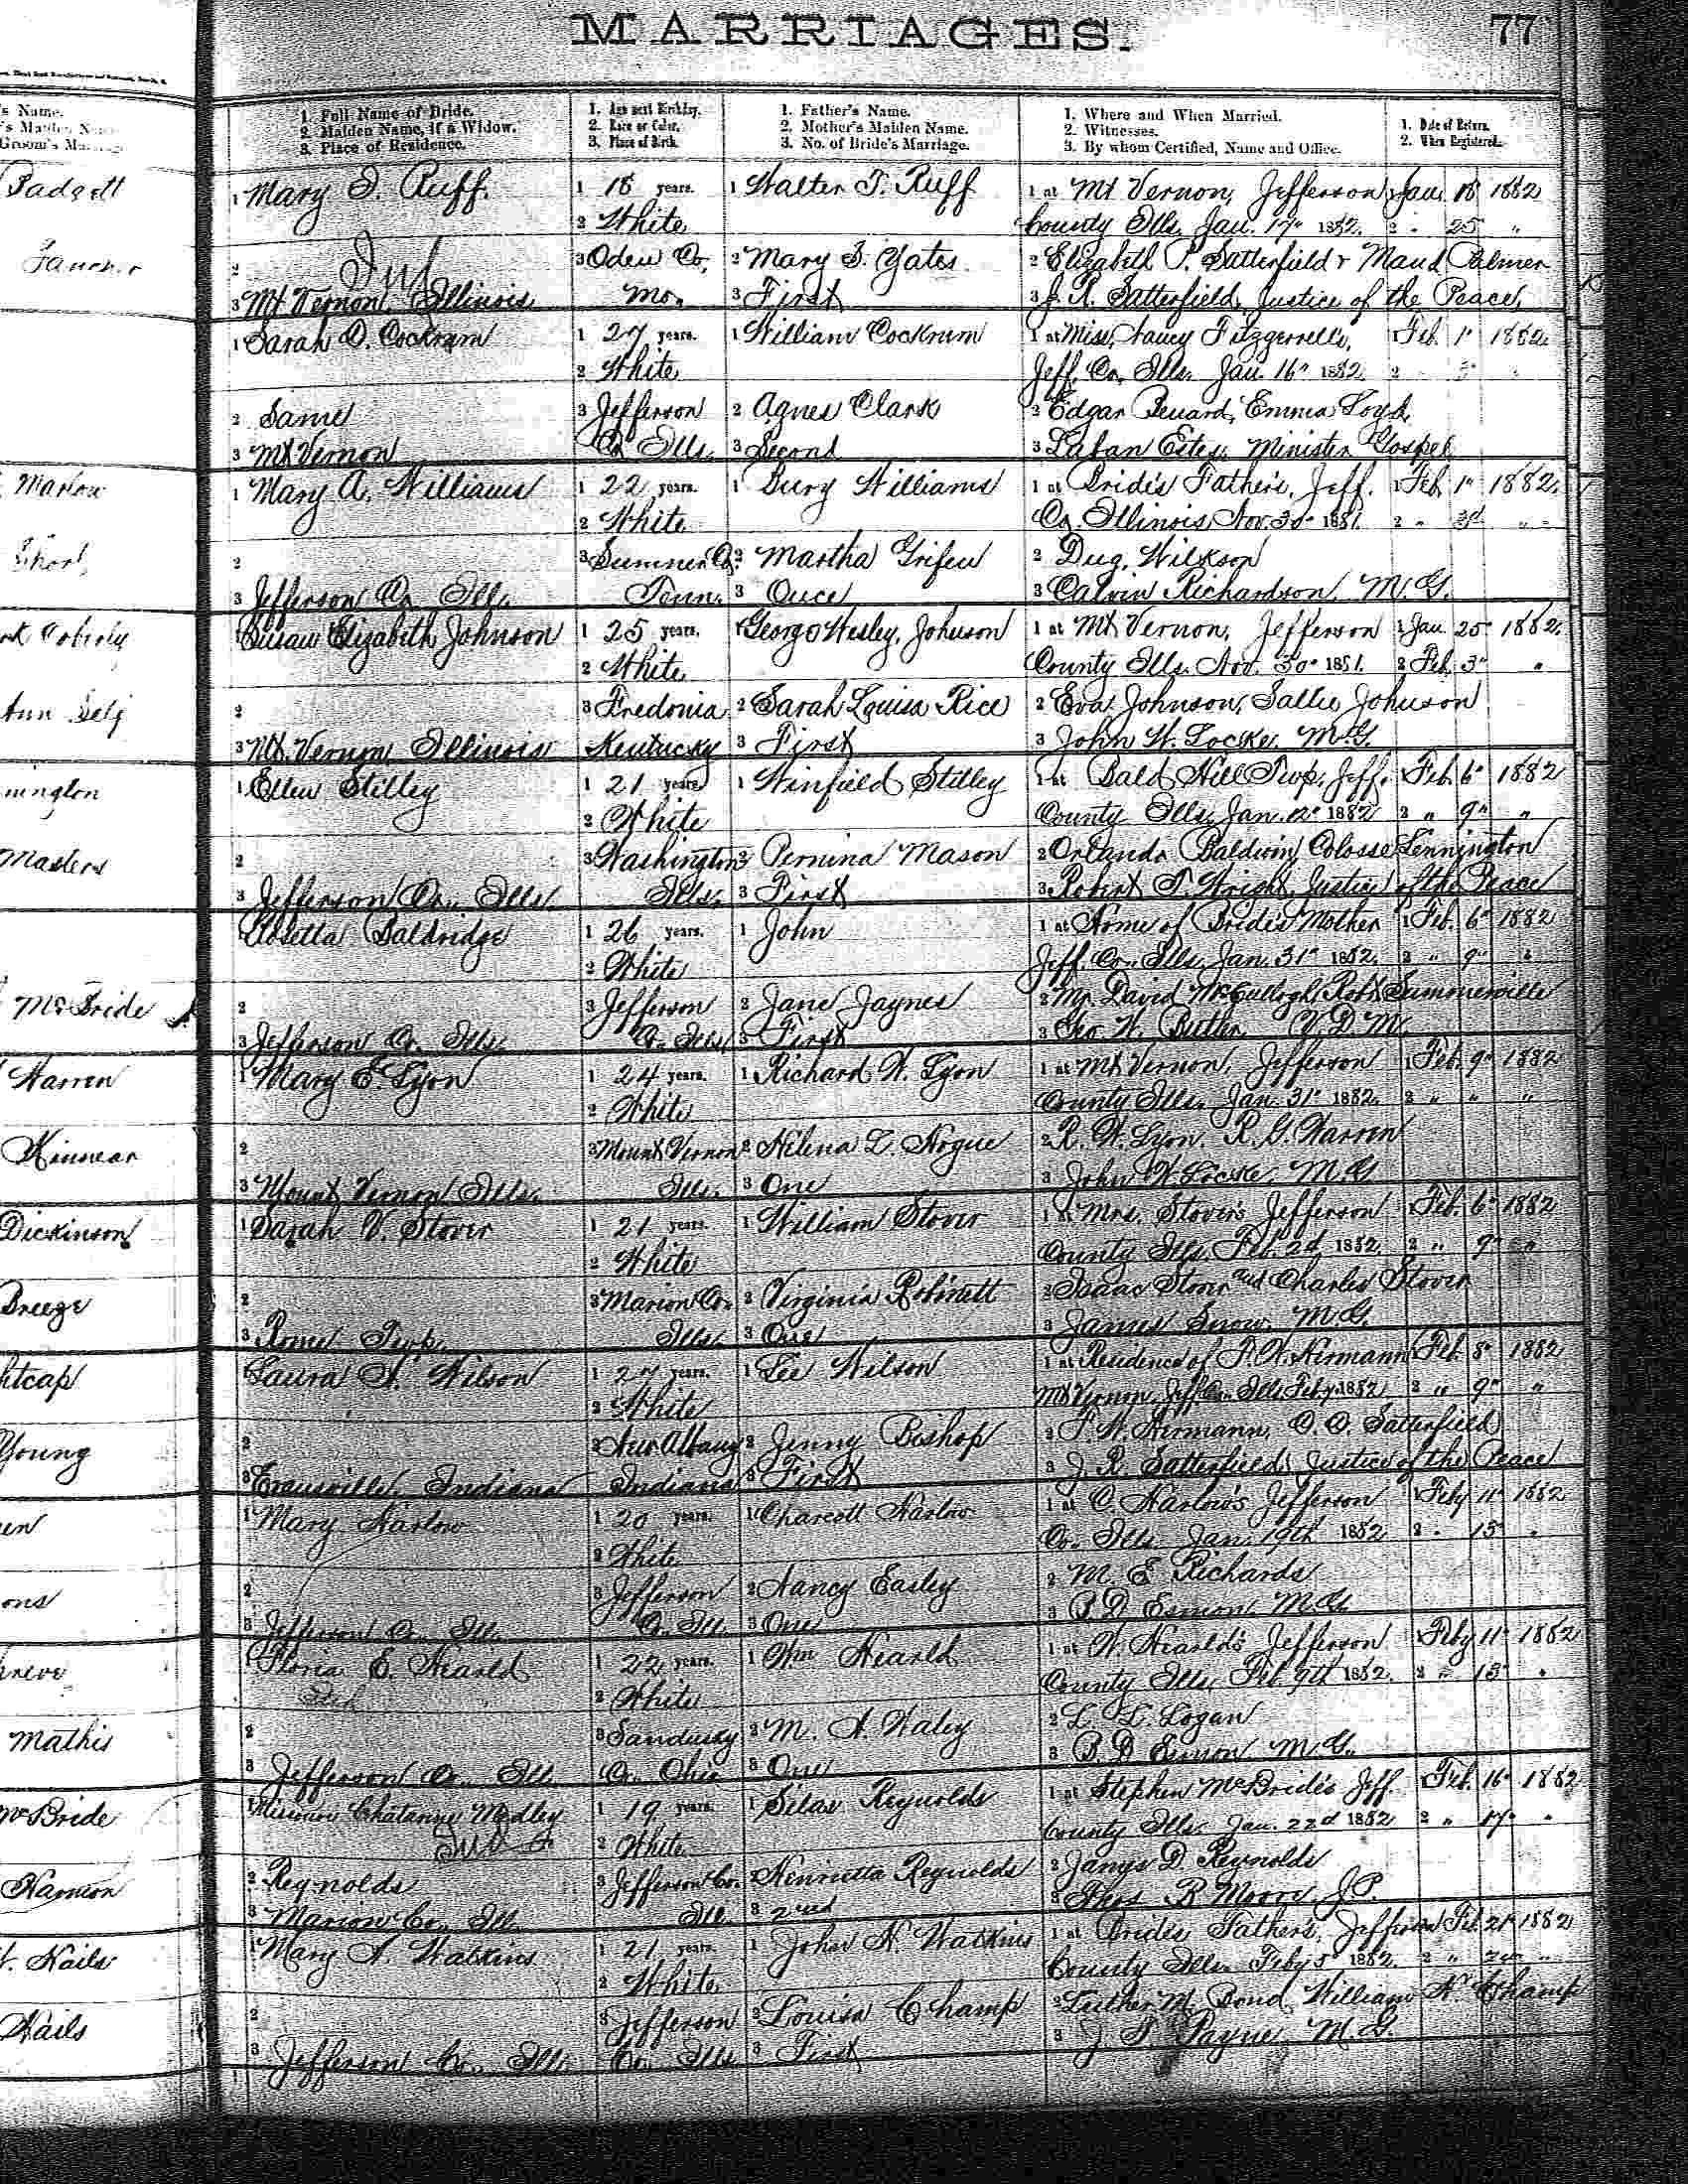 MARRIAGES.
77
1. Full Name of Bride.
2. Maiden Name, if a Widow.
3. Place of Residence.
1. Age next Birthday.
2. Race or Color.
3. Place of Birth.
1. Father's Name.
2. Mother's Maiden Name.
3. No. of Bride's Marriage.
1. Where and When Married.
2. Witnesses.
3. By whom Certified, Name and Office.
1. Date of Return.
2. When Registered.
's Name.
Padgett
1 Mary I. Ruff. 1 18 years. 1 Walter T. Ruff 1 at Mt Vernon, Jefferson 1 Jan. 18 1882
2 White County Ills. Jan. 17" 1882. 2 " 25 "
2 3 Oden Co, 2 Mary S. Yates 2 Elizabeth P. Satterfield & Maud Palmer
3 Mt Vernon, Illinois Mo. 3 First 3 J. R. Satterfield, Justice of the Peace,
1 Sarah D. Cockrum 1 27 years. 1 William Cockrum 1 at Miss, Nancy Fitzgerrell's, 1 Feb. 1" 1882
2 White Jeff. Co. Ills. Jan. 16" 1882. 2
2 Same 3 Jefferson 2 Agnes Clark 2 Edgar
3 Mt Vernon Co Ills. 3 Second 3 Laban Estes, Minister Gospel
Marlow
1 Mary A. Williams 1 22 years. 1 Bury Williams 1 at Bride's Father's, Jeff. 1 Feb. 1" 1882.
2 White Co. Illinois, Nov. 30" 1881. 2 " 3d "
Short,
2 3 Sumner Co. 2 Martha Grifen 2 Dug. Wilkson
3 Jefferson Co. Ill. Tenn. 3 Once 3 Calvin Richardson, M. G.
1 Susan Elizabeth Johnson 1 25 years. 1 George Wesley, Johnson 1 at Mt Vernon, Jefferson 1 Jan. 25" 1882.
2 White County Ills. Nov. 30" 1881. 2 Feb. 3" "
2 3 Fredonia 2 Sarah Louisa Rice 2 Eva Johnson, Sallie Johnson
3 Mt. Vernon, Illinois Kentucky 3 First 3 John W. Locke, M. G.
nington
1 Ellen Stilley 1 21 years 1 Winfield Stilley 1 at Bald Hill Twp, Jeff. 1 Feb. 6" 1882
2 White County Ills, Jan. 12" 1882 2 " 9" "
Masters
2 3 Washington 2 Pernina Mason 2 Orlando Baldwin, Colosse Lennington
3 Jefferson Co., Ills. Ills. 3 First 3 Robert T. Wright, Justice of the Peace
Rosetta Baldridge 1 26 years. 1 John 1 at Home of Bride's Mother 1 Feb. 6" 1882
2 White Jeff. Co. Ills. Jan. 31" 1882. 2 " 9" "
McBride
2 3 Jefferson 2 Jane Jaynes 2 Mr. David McCullogh, Robt Summerville
3 Jefferson Co. Ills. Co. Ills. 3 First 3 Geo. W. Butler V. D. M.
Warren
1 Mary E. Lyon 1 24 years. 1 Richard W. Lyon 1 at Mt Vernon, Jefferson 1 Feb. 9" 1882
2 White County Ills. Jan. 31" 1882. 2 " " "
Kinnear
2 3 Mount Vernon 2 Helena L. Hogue 2 R. W. Lyon, R. G. Warren
3 Mount Vernon, Ills. Ills. 3 One 3 John W. Locke, M. G.
Dickinson
1 Sarah V. Stover 1 21 years. 1 William Stover 1 at Mrs. Stover's Jefferson 1 Feb. 6" 1882
2 White County Ills. Feb. 2d, 1882. 2 " 9" "
Breeze
2 3 Marion Co. 2 Virginia Robinett 2 Isaac Stover and Charles Stover
3 Rome Twp. Ills. 3 One 3 James Snow, M. G.
htcap
Laura A. Wilson 1 27 years. 1 Lee Wilson 1 at Residence of T. W. Hermann 1 Feb. 8" 1882
2 White Mt Vernon, Jeff Co. Ills Feb 7 1882 2 " 9" "
Young
2 3 New Albany 2 Jenny Bishop 2 T. W. Hermann, O. O. Satterfield
3 Evansville, Indiana Indiana 3 First 3 J. R. Satterfield, Justice of the Peace
1 Mary Harlow 1 20 years. 1 Charcott Harlow 1 at C. Harlow's Jefferson 1 Feby 11" 1882
2 White Co. Ills. Jan. 19th 1882 2 " 13" "
ons
2 3 Jefferson 2 Nancy Easley 2 M. E. Richards
3 Jefferson Co. Ill. Co. Ill. 3 One 3 B. D. Esmon, M. G.
Floria E. Hearld 1 22 years. 1 Wm Hearld 1 at W. Hearld's Jefferson 1 Feby 11" 1882
2 White County Ills. Feb. 9th 1882. 2 " 13" "
Mathis
2 3 Sandusky 2 M. A. Haley 2 L. L. Logan
3 Jefferson Co. Ill. Co. Ohio 3 One 3 B. D. Esmon M. G.
McBride
Missouri Chatanny Medley 1 19 years. 1 Silas Reynolds 1 at Stephen McBride's Jeff. 1 Feb. 16" 1882
2 White County Ills. Jan. 22d 1882 2 " 17" "
2 Reynolds 3 Jefferson Co. 2 Henrietta Reynolds 2 D. Reynolds
3 Marion Co. Ill. Ill. 3 2nd 3 Thos. B. Moore J.P.
Nails
1 Mary A. Watkins 1 21 years. 1 John H. Watkins 1 at Brides Father's, Jefferson Feb. 21" 1882
2 White County Ills. Feby 5" 1882. 2 "
Nails
2 3 Jefferson 2 Louisa Champ 2 Luther M. Bond, William H. Champ
3 Jefferson Co., Ill. Co. Ills 3 First 3 J. T. Payne, M. G.